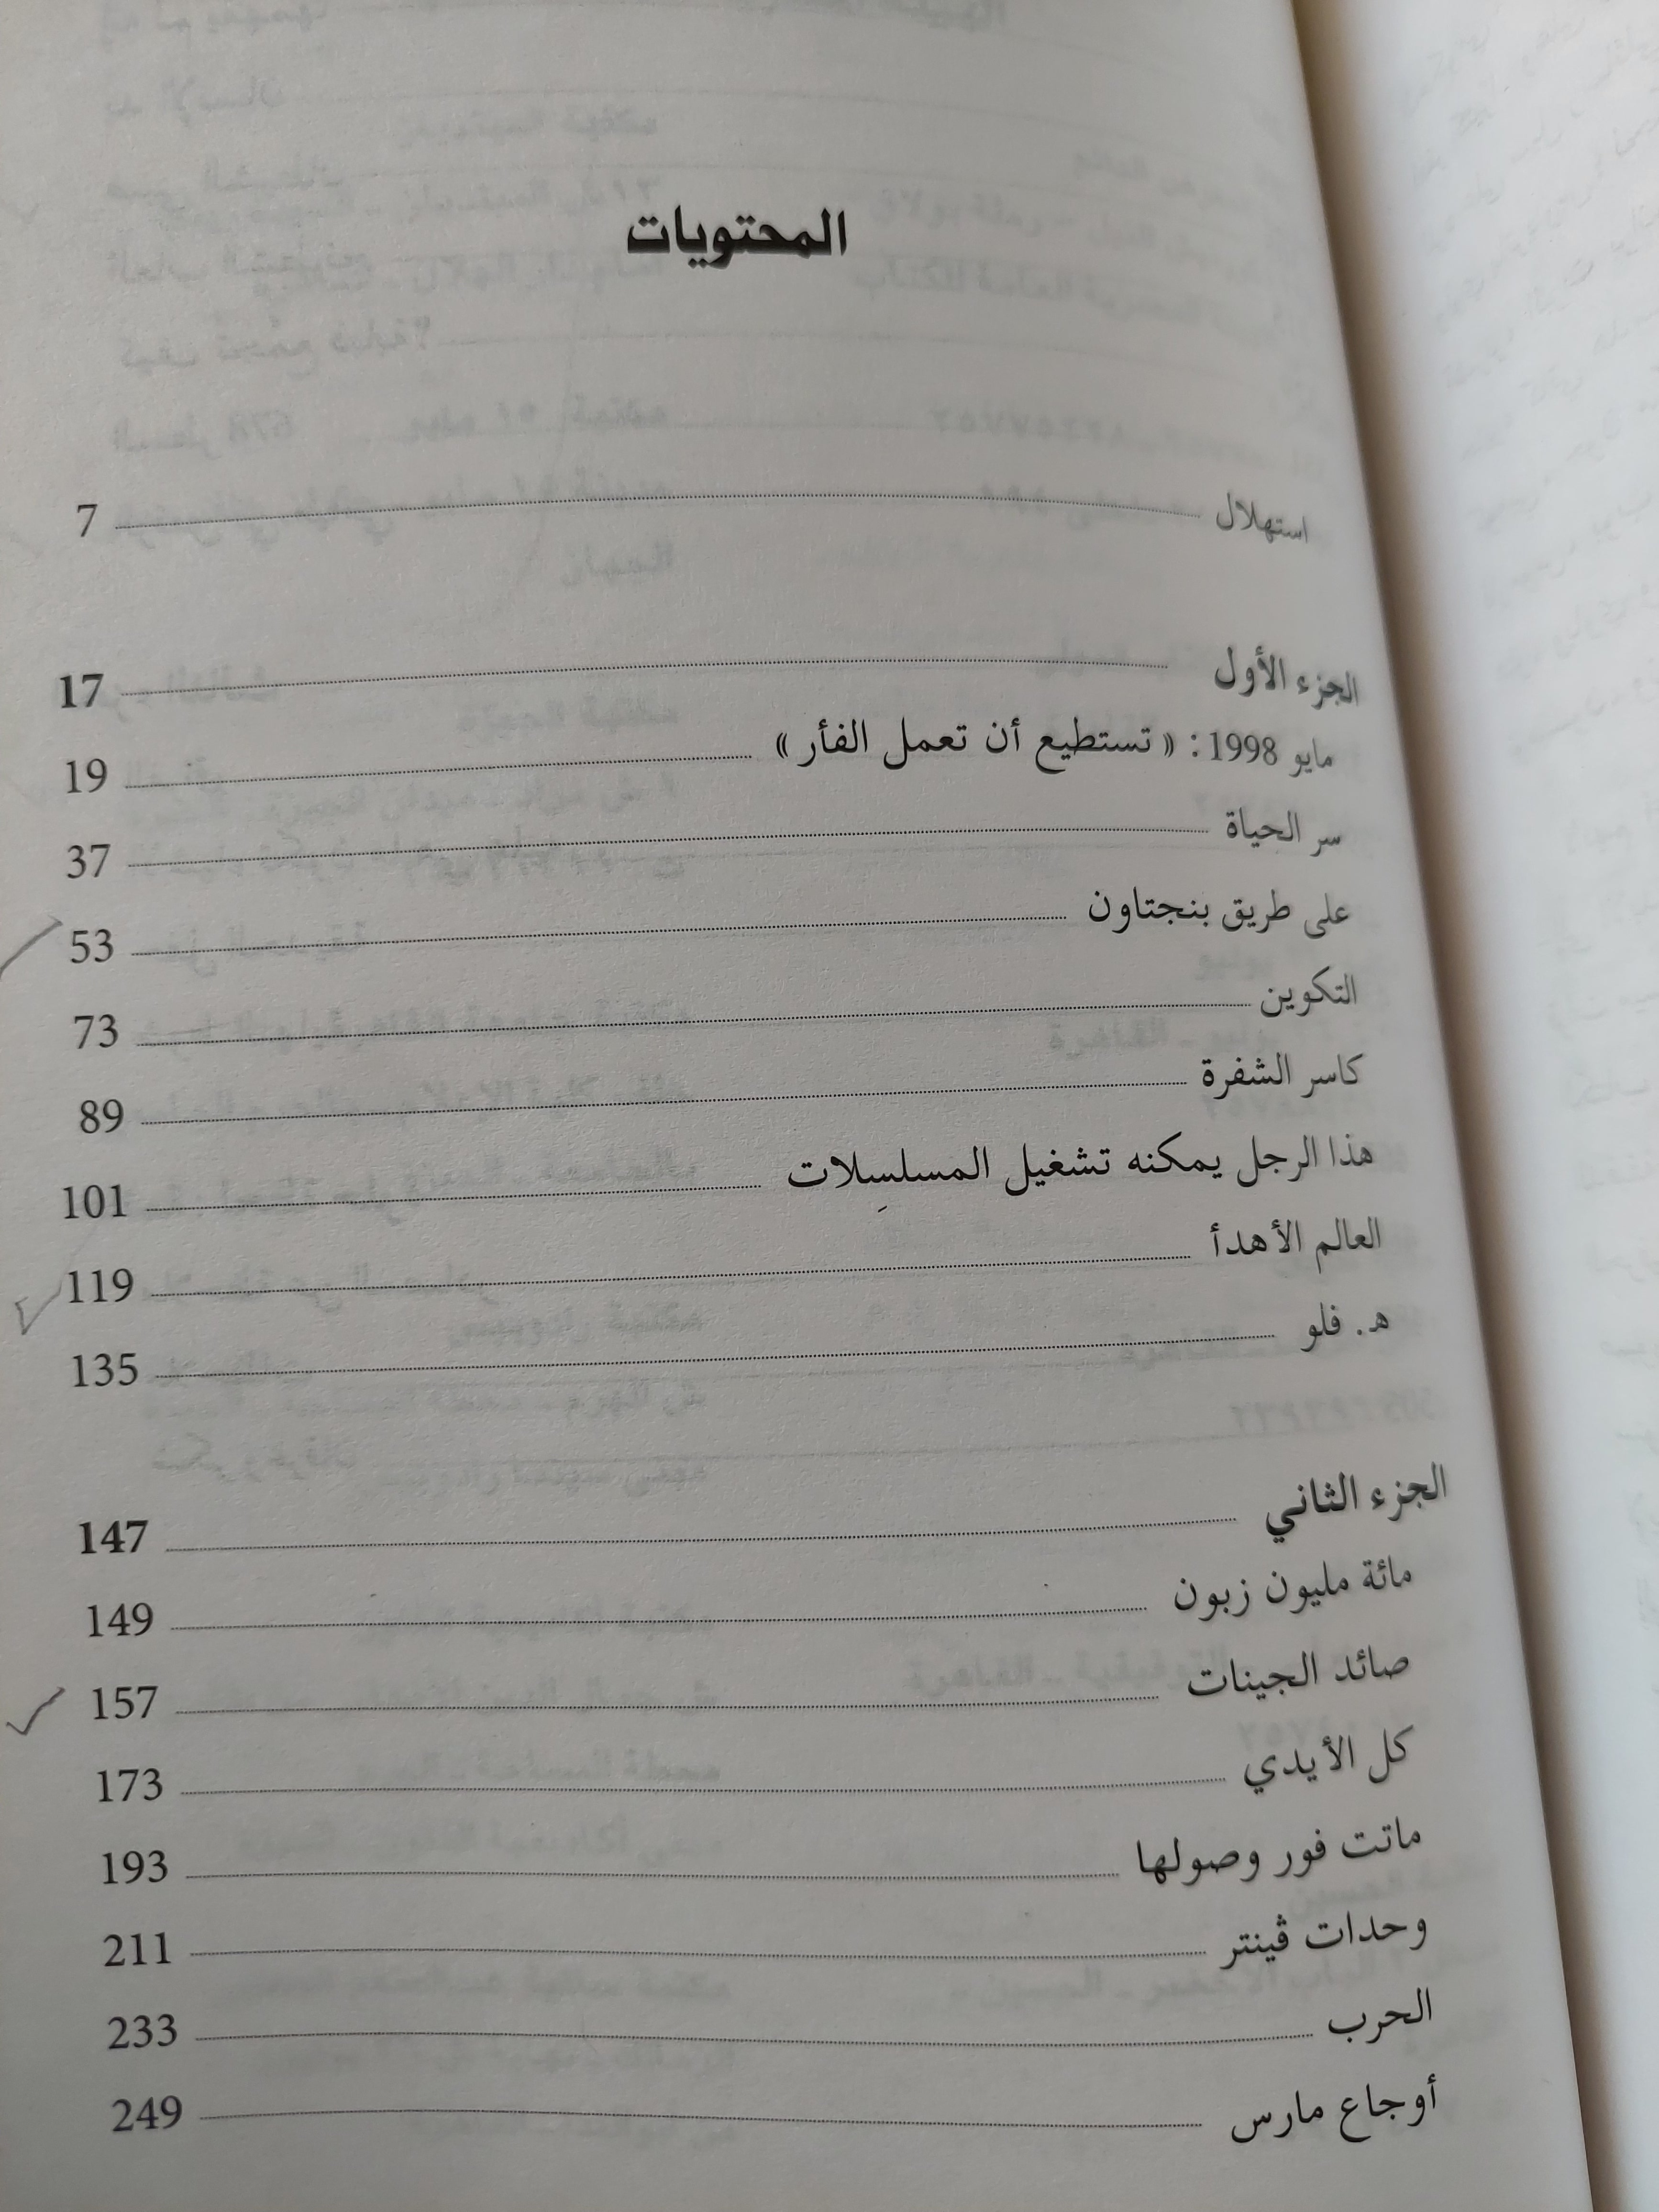 المحتويات
استهلال 7
الجزء الأول 17
مايو 1998: « تستطيع أن تعمل الفأر » 19
سر الحياة 37
على طريق بنجتاون 53
التكوين 73
كاسر الشفرة 89
هذا الرجل يمكنه تشغيل المسلسِلات 101
العالم الأهدأ 119
هـ. فلو 135
الجزء الثاني 147
مائة مليون زبون 149
صائد الجينات 157
كل الأيدي 173
ماتت فور وصولها 193
وحدات ڤينتر 211
الحرب 233
أوجاع مارس 249